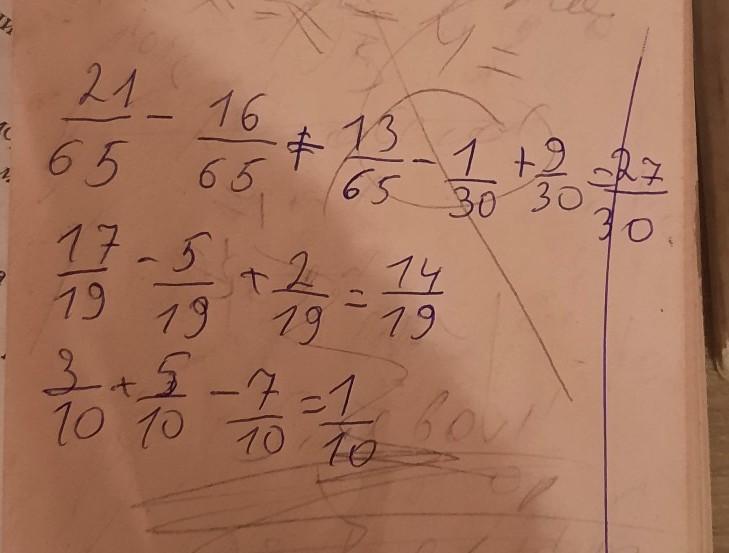 21/65 - 16/65 ≠ 13/65 - 1/30 + 9/30 = 27/30
17/19 - 5/19 + 2/19 = 14/19
3/10 + 5/10 - 7/10 = 1/10